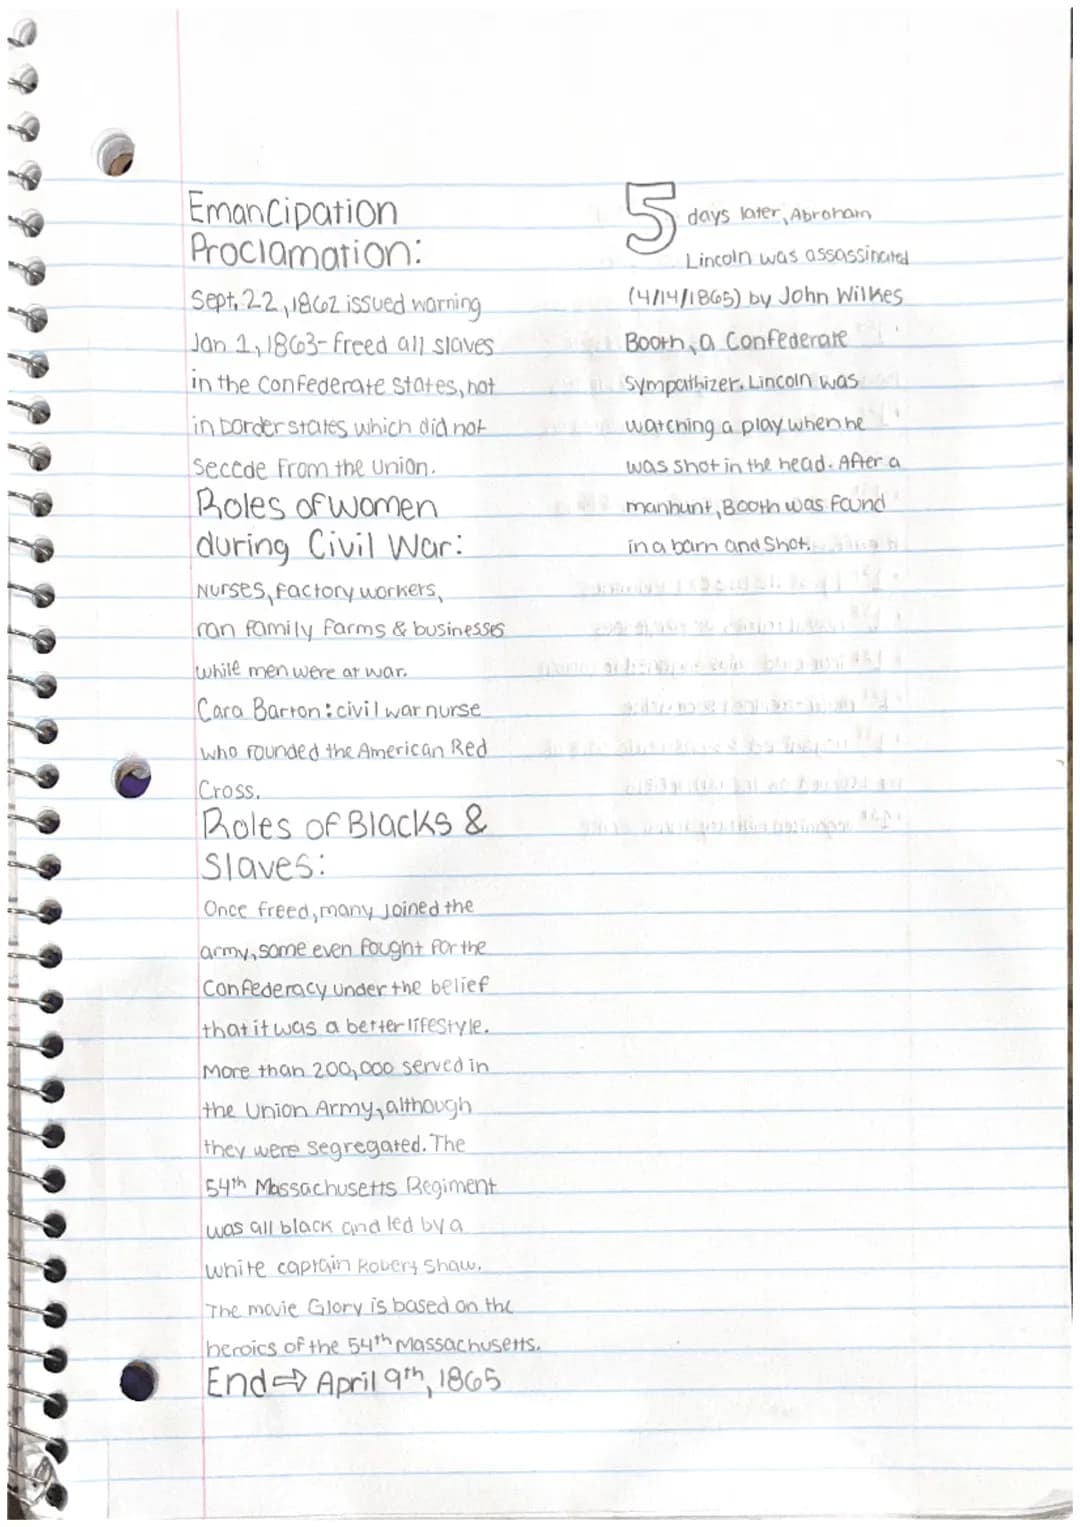 Emancipation
Proclamation:
Sept. 22, 1862 issued warning
Jan 1, 1863- Freed all slaves
in the Confederate states, not
in border states which did not
Secede From the Union.
Roles of women
during Civil War:
Nurses, Factory workers,
ran family farms & businesses
while men were at war.
Cara Barton: civil war nurse
who founded the American Red
Cross.
Roles of Blacks &
Slaves:
Once freed, many joined the
army, some even fought for the
Confederacy under the belief
that it was a better lifestyle.
More than 200,000 served in
the Union Army, although
they were segregated. The
54th Massachusetts Regiment
was all black and led by a
white captain Robert Shaw.
The movie Glory is based on the
heroics of the 54th Massachusetts.
End ⇒ April 9th, 1865
5 days later, Abraham
Lincoln was assassinated
(4/14/1865) by John Wilkes
Booth, a Confederate
Sympathizer. Lincoln was
watching a play when he
was shot in the head. After a
manhunt, Booth was found
in a barn and Shot.